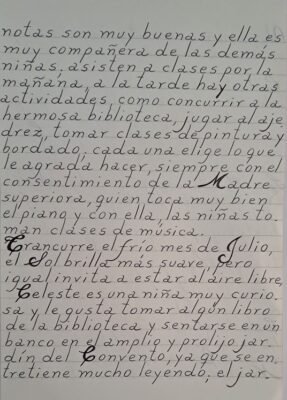 notas son muy buenas y ella es
muy compañera de las demás
niñas, asisten a clases por la
mañana, a la tarde hay otras
actividades, como concurrir a la
hermosa biblioteca, jugar al aje
drez, tomar clases de pintura y
bordado, cada una elige lo que
le agrada hacer, siempre con el
consentimiento de la Madre
superiora, quien toca muy bien
el piano y con ella, las niñas to-
man clases de música.
Trancurre el frío mes de Julio,
el Sol brilla más suave, pero
igual invita a estar al aire libre,
Celeste es una niña muy curio-
sa y le gusta tomar algún libro
de la biblioteca y sentarse en un
banco en el amplio y prolijo jar-
dín del Convento, ya que se en-
tretiene mucho leyendo, el jar-